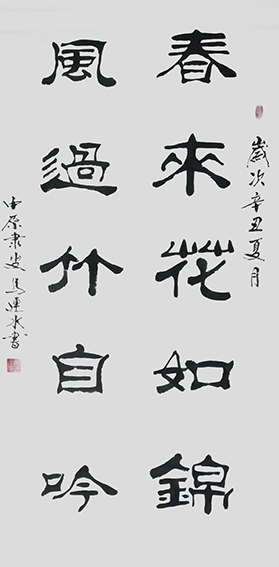 歲次辛丑夏月
春來花如錦
風過竹自吟
中原隶叟馬連水書